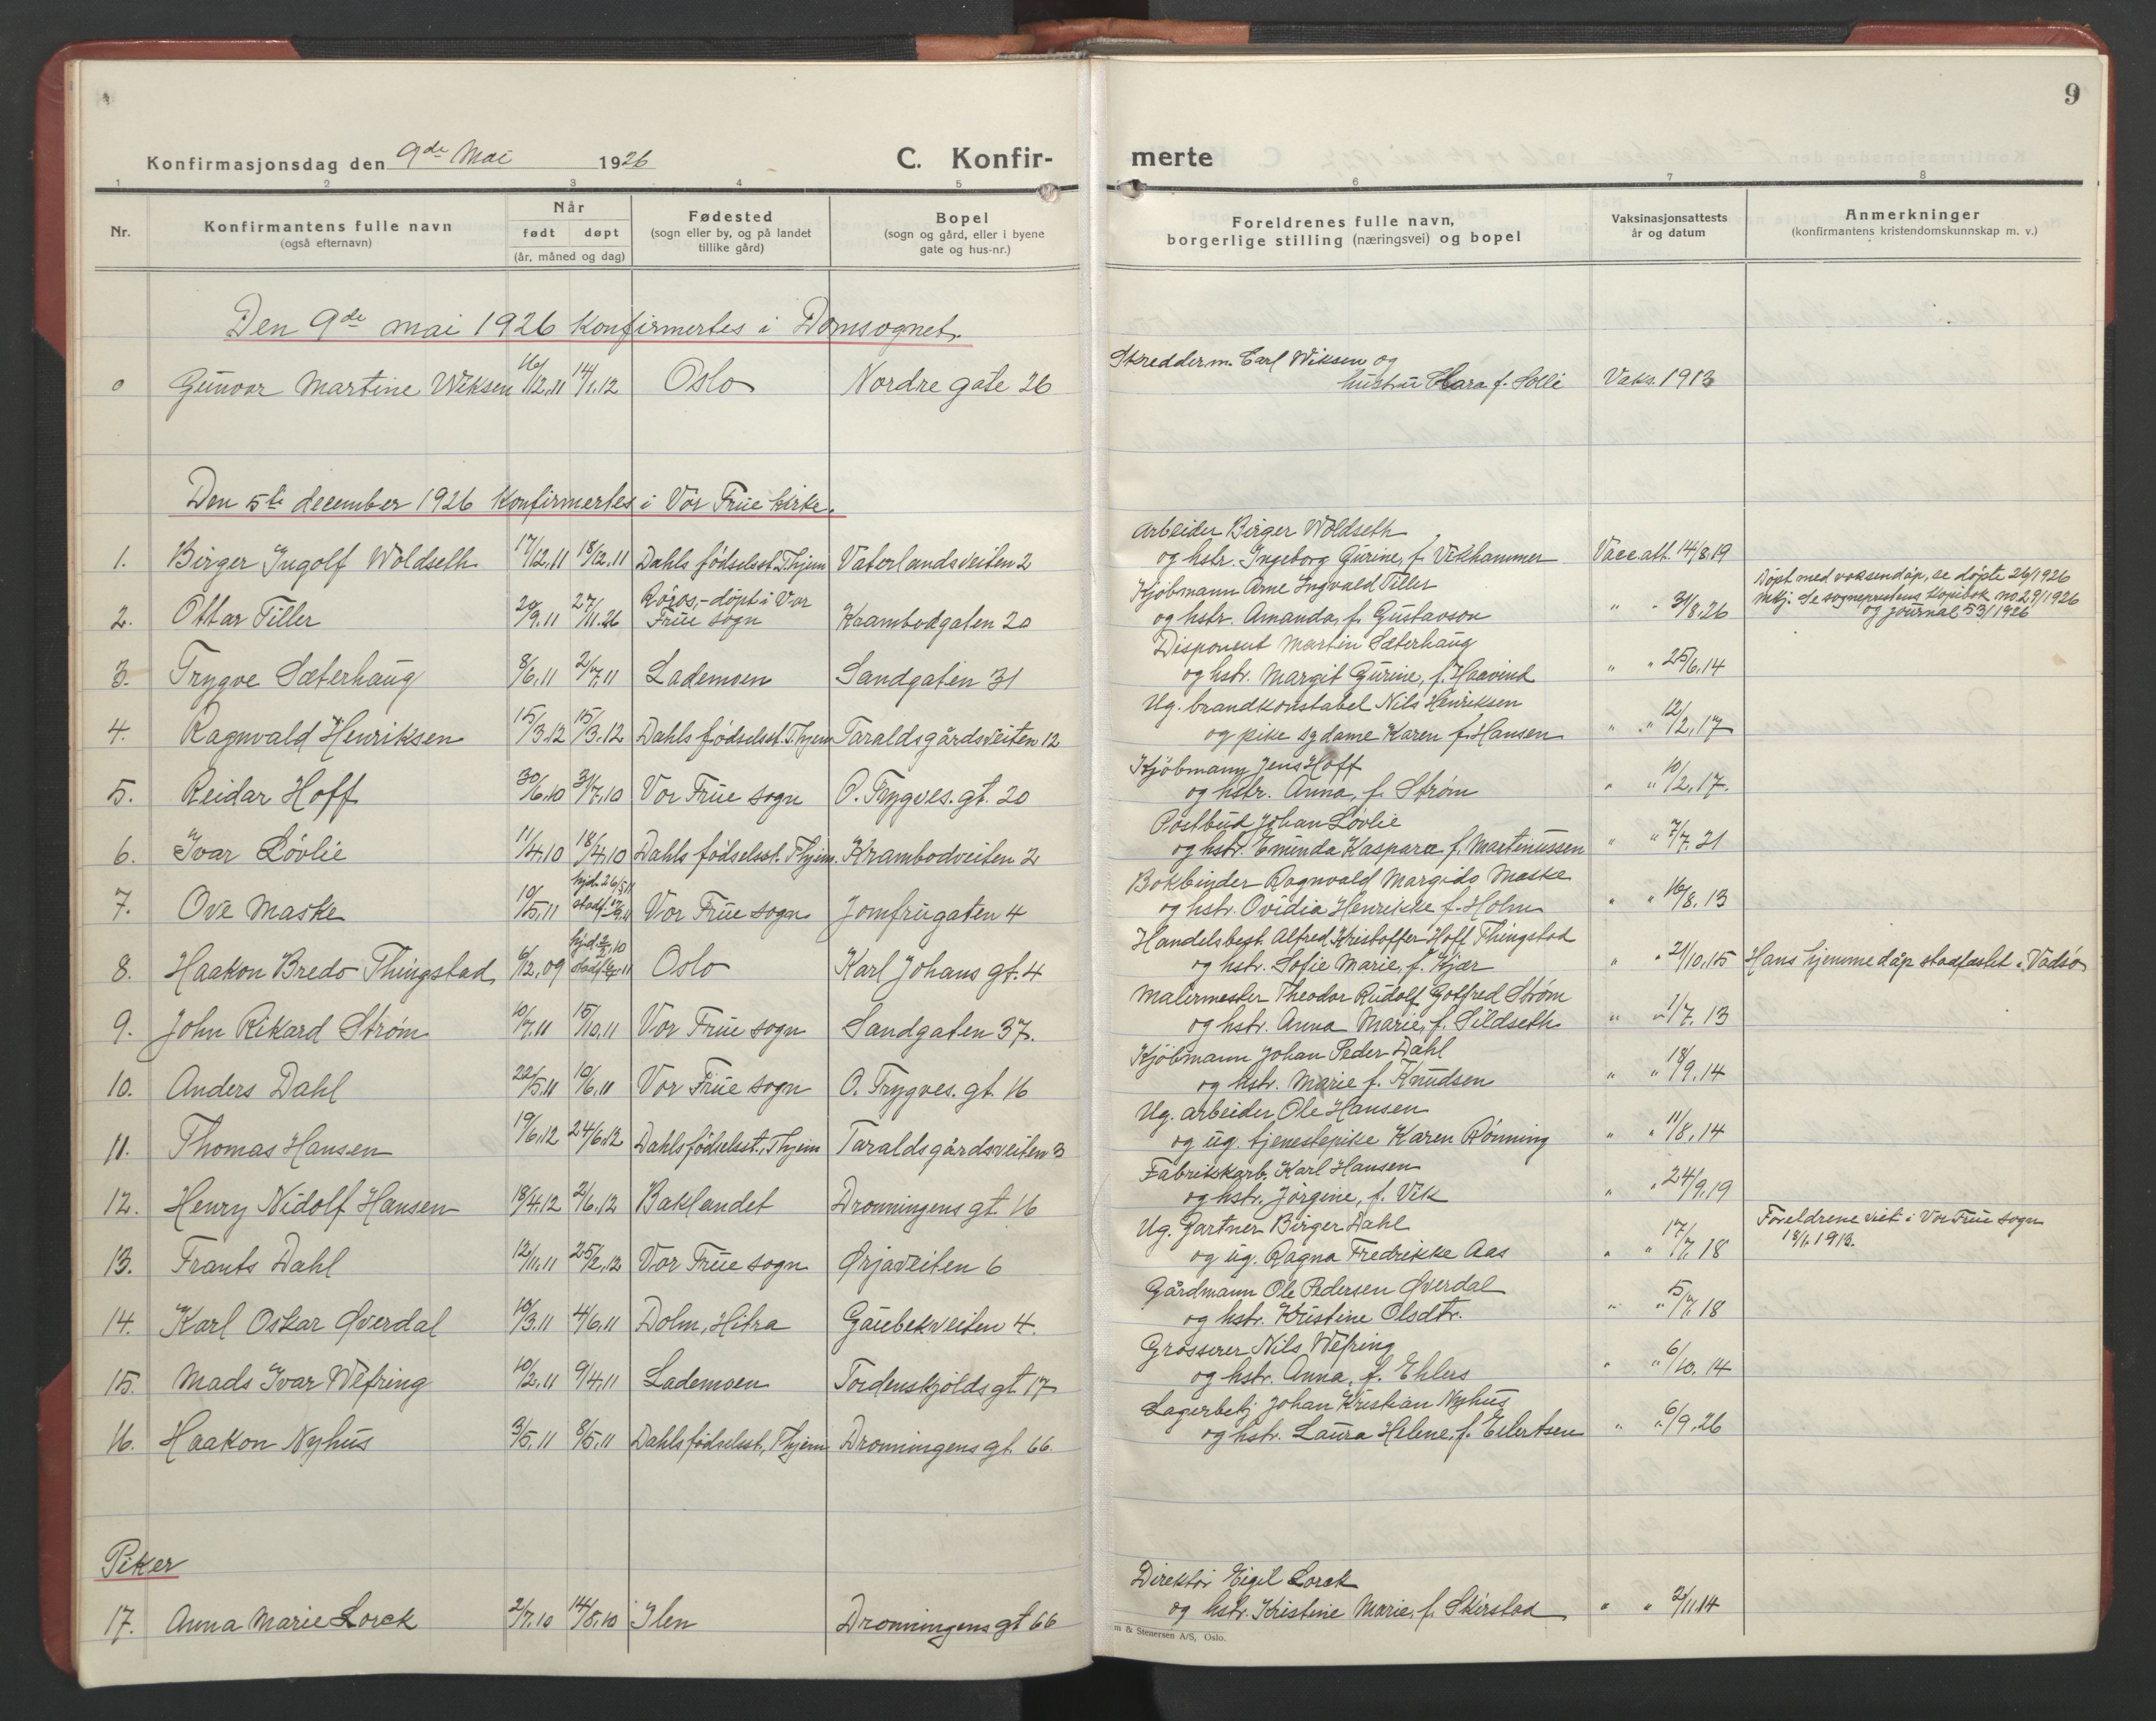 9
Konfirmasjonsdag den 9de Mai 1926
C. Konfir-
merte
1 2 3 4 5 6 7 8
Nr.
Konfirmantens fulle navn
(også efternavn)
Når
født døpt
(år, måned og dag)
Fødested
(sogn eller by, og på landet
tillike gård)
Bopel
(sogn og gård, eller i byene
gate og hus-nr.)
Foreldrenes fulle navn,
borgerlige stilling (næringsvei) og bopel
Vaksinasjonsattests
år og datum
Anmerkninger
(konfirmantens kristendomskunnskap m. v.)
Den 9de mai 1926 konfirmertes i Domsognet.
Skredderm. Carl Wiksen og
0 Gunvor Martine Wiksen 16/12.11 14/1.12 Oslo Nordre gate 26 hustru Clara f. Solli Vaks. 1913
Den 5te december 1926 konfirmertes i Vor Frue kirke.
Arbeider Birger Woldseth
1. Birger Ingolf Woldseth 17/12.11 18/12.11 Dahls fødselsst. Thjem Vaterlandsveiten 2 og hstr. Ingeborg Gurine, f. Vikhammer Vacc.att. 14/8.19
Kjøbmann Arne Ingvald Tiller
Døpt med voksendåp, se døpte 26/1926
Røros,- døpt i Vor
mkj. Se sogneprestens kopibok no 29/1926
2. Ottar Tiller 20/9.11 27/11.26 Frue sogn Krambodgaten 20 og hstr. Amanda, f. Gustavson " " 31/8.26 og journal 53/1926
Disponent Martin Sæterhaug
3. Trygve Sæterhaug 8/6.11 2/7.11 Lademoen Sandgaten 31 og hstr. Margit Gurine, f. Haavind " " 25/6.14
Ug. brandkonstabel Nils Henriksen
4. Ragnvald Henriksen 15/3.12 15/3.12 Dahls fødselsst. Thjem Taraldsgårdsveiten 12 og pike sydame Karen f. Hansen " " 12/2.17
Kjøbmann Jens Hoff
5. Reidar Hoff 30/6.10 31/7.10 Vor Frue sogn O. Trygves. gt. 20 og hstr. Anna, f. Strøm " " 10/2.17.
Postbud Johan Løvlie
6. Ivar Løvlie 11/4.10 18/4.10 Dahls fødselsst. Thjem. Krambodveiten 2 og hstr. Eminda Kaspara f. Martinussen " " 7/7.21
hjd. 26/5.11
Bokbinder Ragnvald Margido Maske
7. Ove Maske 10/5.11 stadf. Vor Frue sogn Jomfrugaten 4 og hstr. Ovidia Henrikke f. Holm " " 16/8.13
Handelsbest. Alfred Kristoffer Hoff Thingstad
8. Haakon Bredo Thingstad 6/12.09 Oslo Karl Johans gt. 4 og hstr. Sofie Marie, f. Kjær " " 21/10.15 Hans hjemmedåp stadfæstet i Vadsø
Malermester Theodor Rudolf Gotfred Strøm
9. John Rikard Strøm 10/7.11 15/10.11 Vor Frue sogn Sandgaten 37. og hstr. Anna Marie, f. Sildseth " " 1/7.13
Kjøbmann Johan Peder Dahl
10. Anders Dahl 20/5.11 10/6.11 Vor Frue sogn O. Trygves. gt. 16 og hstr. Marie f. Knudsen " " 18/9.14
Ug. arbeider Ole Hansen
11. Thomas Hansen 19/6.12 24/6.12 Dahls fødselsst., Thjem Taraldsgårdsveiten 3 og ug. tjenestepike Karen Rønning " " 11/8.14
Fabrikkarb. Karl Hansen
12. Henry Nidolf Hansen 18/4.12 2/6.12 Baklandet Dronningens gt 16 og hstr. Jørgine, f. Vik " " 24/9.19
Ug. Gartner Birger Dahl
Foreldrene viet i Vor Frue sogn
13. Frants Dahl 12/11.11 25/2.12 Vor Frue sogn Ørjaveiten 6 og ug. Ragna Fredrikke Aas " " 17/7.18 18/1.1913.
Gårdmann Ole Pedersen Øverdal
14. Karl Oskar Øverdal 10/3.11 4/6.11 Dolm, Hitra Gaubekveiten 4. og hstr. Kristine Olsdtr. " " 5/7.18
Grosserer Nils Wefring
15. Mads Ivar Wefring 10/2.11 9/4.11 Lademoen Tordenskjolds gt 17 og hstr. Anna, f. Ehlers " " 6/10.14
Lagerbetj. Johan Kristian Nyhus
16. Haakon Nyhus 3/5.11 8/5.11 Dahls fødselsst., Thjem Dronningens gt. 66. og hstr. Laura Helene, f. Eilertsen " " 6/9.26
Piker
Direktør Eigil Lorck
17. Anna Marie Lorck 2/7.10 14/8.10 Ilen Dronningens gt 66 og hstr. Kristine Marie, f. Skirstad " " 2/11.14
m & Stenersen A/S, Oslo.